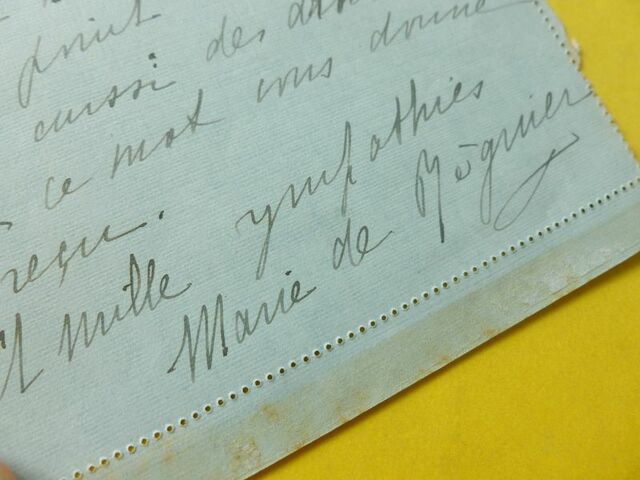 point
aussi des
ce mot vous donne
reçu.
Et mille sympathies
Marie de Régnier